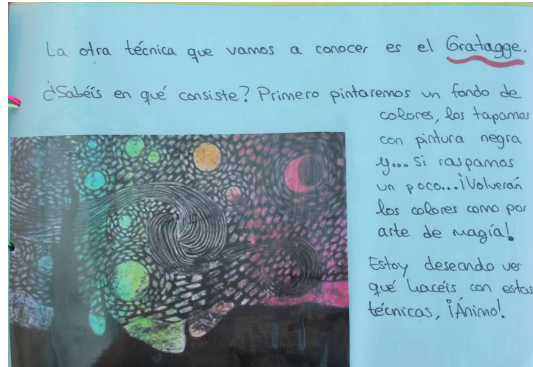 La otra técnica que vamos a conocer es el Grattagge.
¿Sabéis en qué consiste? Primero pintaremos un fondo de
colores, los tapamos
con pintura negra
y... si raspamos
un poco...¡Volverán
los colores como por
arte de magía!
Estoy deseando ver
qué hacéis con estas
técnicas, ¡Ánimo!.